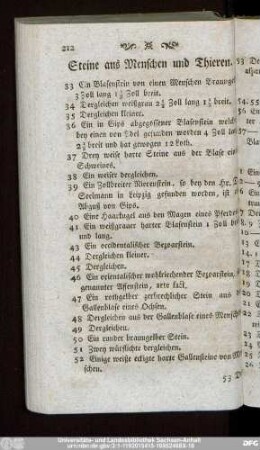 212
Steine aus Menschen und Thieren.
33 Ein Blasenstein von einen Menschen braungelb
3 Zoll lang 1½ Zoll breit.
34 Dergleichen weißgrau 2¼ Zoll lang 1½ breit.
35 Dergleichen kleiner.
36 Ein in Gips abgegossener Blasenstein welch
bey einen von Adel gefunden worden 4 Zoll la
2½ breit und hat gewogen 12 Loth.
37 Drey weise harte Steine aus der Blase ein
Schweines.
38 Ein weiser dergleichen.
39 Ein Zollbreiter Nierenstein, so bey den Hr. D
in Leipzig gefunden worden, ist
Abguß von Gips.
40 Eine Haarkugel aus den Magen eines Pferdes
41 Ein weißgrauer harter Blasenstein 1 Zoll b
und lang.
43 Ein occidentalischer Bezoarstein.
44 Dergleichen kleiner.
45 Dergleichen.
46 Ein orientalischer wohlriechender Bezoarstein
genannter Affenstein, sehr
47 Ein rothgelber zerbrechlicher Stein aus
Gallenblase eines Ochsen.
48 Dergleichen aus der Gallenblase eines Mensch
49 Dergleichen.
50 Ein runder braungelber Stein.
51 Zwey würflichte dergleichen.
52 Einige weiße eckigte harte Gallensteine von M
schen.
53 D
Universitäts- und Landesbibliothek Sachsen-Anhalt
DFG